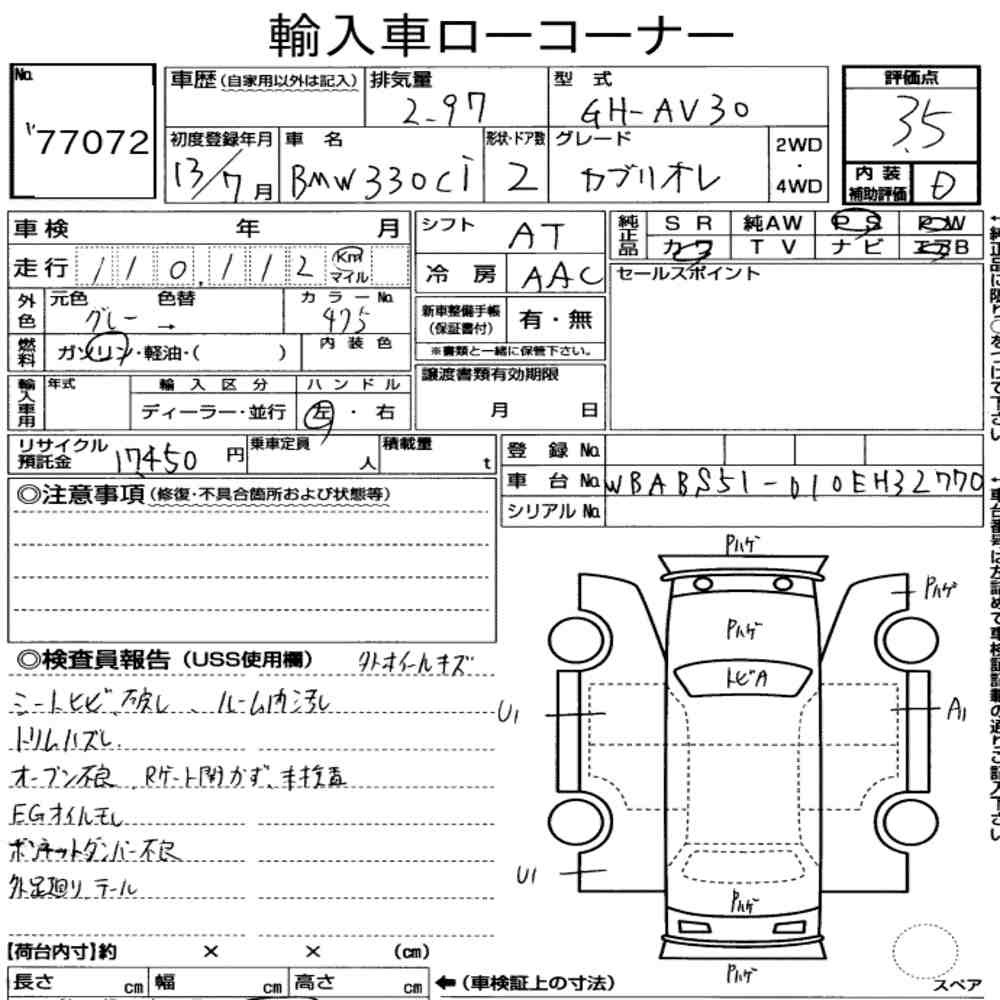 輸入車ローコーナー
No.
77072
車歴(自家用以外は記入)
排気量
2.97
型式
GH-AV30
評価点
3.5
初度登録年月
13/7月
車名
BMW330Ci
形状・ドア数
2
グレード
カブリオレ
2WD
・
4WD
内装
補助評価
D
車検 年 月
シフト
AT
純正品
SR 純AW PS PW
カワ TV ナビ エアB
走行
110,112
Km
マイル
冷房
AAC
セールスポイント
外色
元色
グレー→
色替
カラーNo.
475
新車整備手帳
(保証書付)
有・無
※書類と一緒に保管下さい。
燃料
ガソリン・軽油・( )
内装色
輸入車用
年式
輸入区分
ディーラー・並行
ハンドル
左・右
譲渡書類有効期限
月 日
リサイクル
預託金
17450円
乗車定員
人
積載量
t
登録No.
車台No.
WBABS51-010EH32770
シリアルNo.
←純正品に限り○をつけて下さい
←車台番号は左詰めで車検証記載の通りご記入下さい
◎注意事項(修復・不具合箇所および状態等)
◎検査員報告(USS使用欄)
外ホイールキズ
シートヒビ、破し、ルーム内汚し
トリムハズレ
オープン不良、Rゲート開かず、未検査
EGオイルモレ
ボンネットダンパー不良
外足廻り、テール
Pハゲ
Pハゲ
Pハゲ
トビA
U1
A1
U1
Pハゲ
Pハゲ
スペア
【荷台内寸】約 × × (cm)
長さ cm
幅 cm
高さ cm
←(車検証上の寸法)